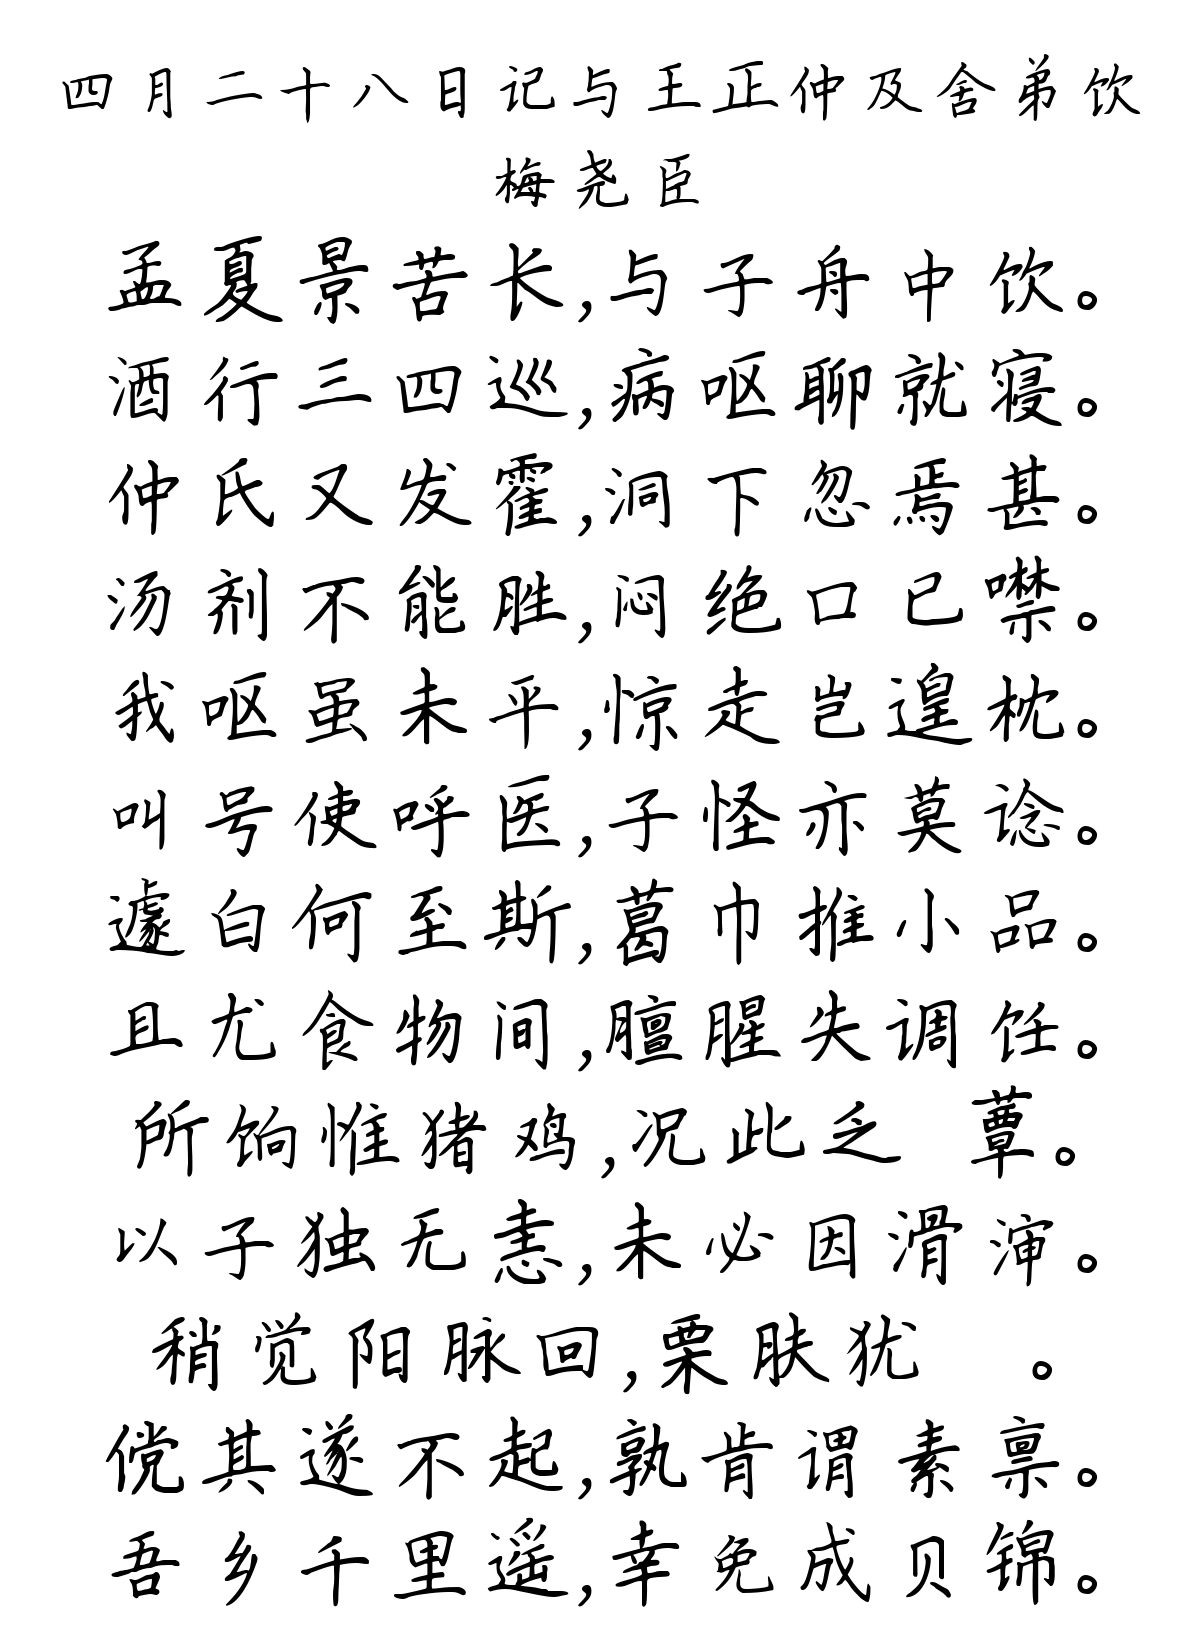 四月二十八日记与王正仲及舍弟饮
梅尧臣
孟夏景苦长,与子舟中饮。
酒行三四巡,病呕聊就寝。
仲氏又发霍,洞下忽焉甚。
汤剂不能胜,闷绝口已噤。
我呕虽未平,惊走岂遑枕。
叫号使呼医,子怪亦莫谂。
遽白何至斯,葛巾推小品。
且尤食物间,膻腥失调饪。
所饷惟猪鸡,况此乏 蕈。
以子独无恙,未必因滑渖。
稍觉阳脉回,栗肤犹 。
傥其遂不起,孰肯谓素禀。
吾乡千里遥,幸免成贝锦。